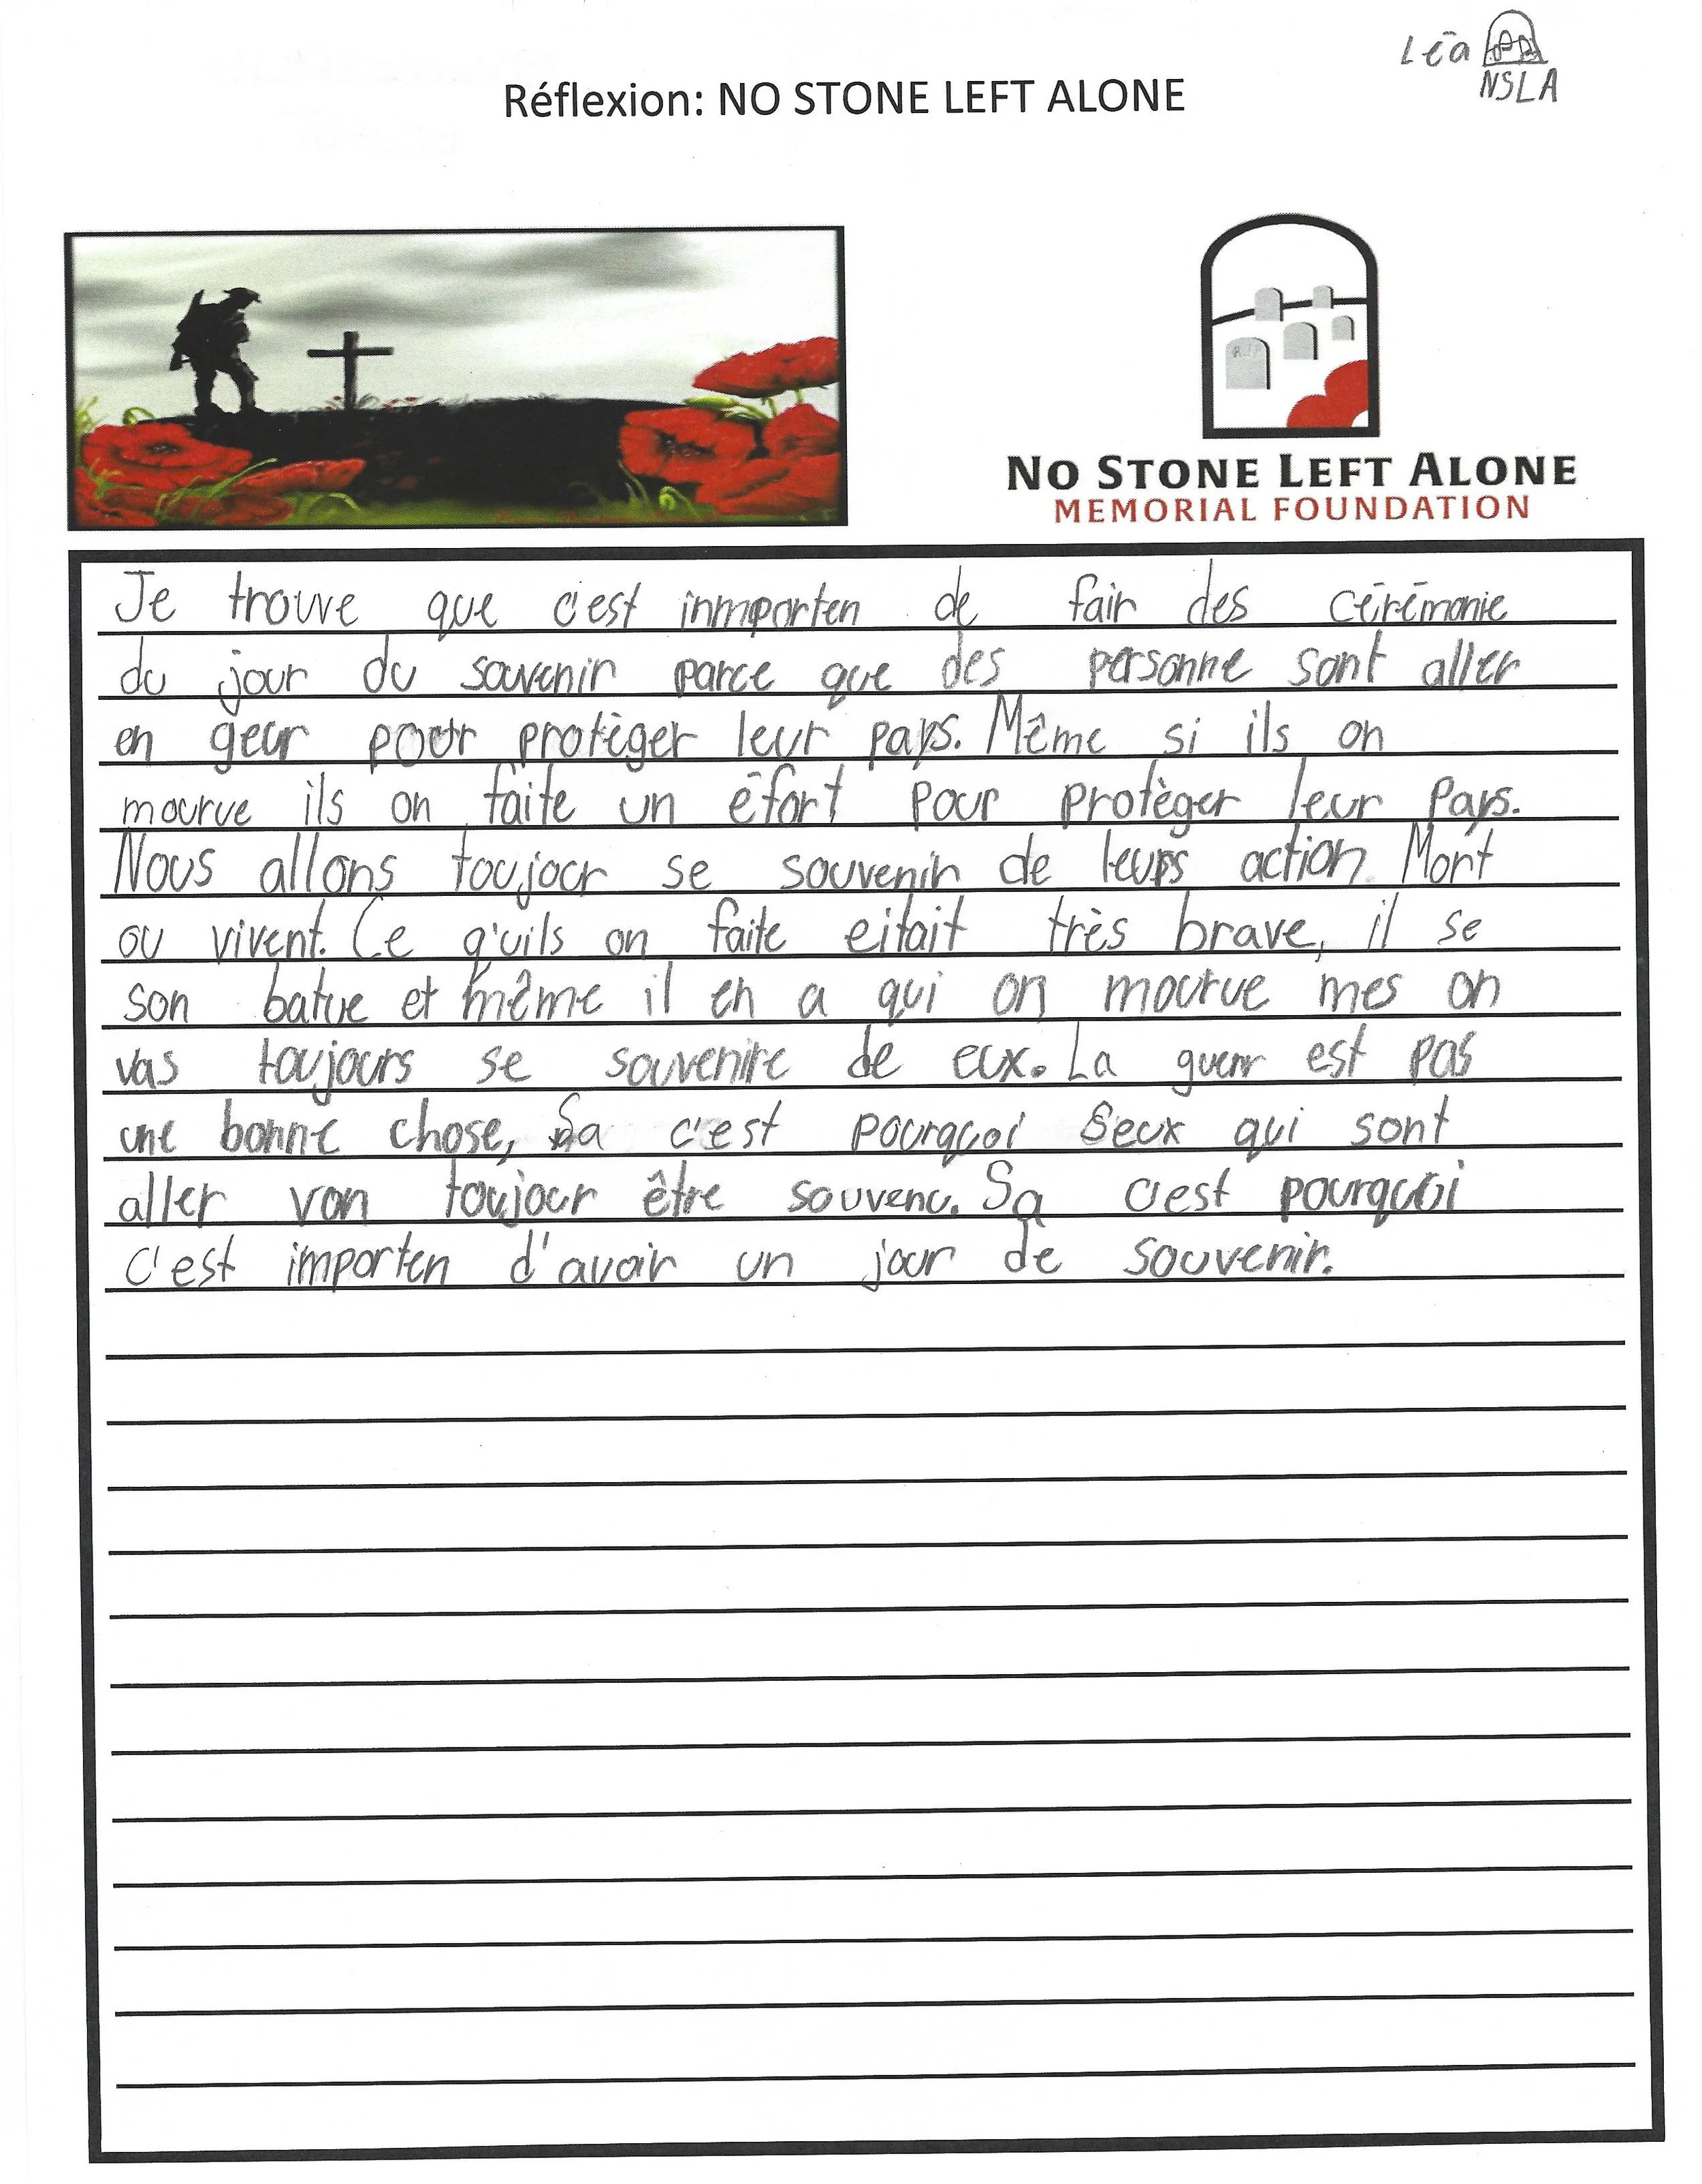 Léa
NSLA
Réflexion: NO STONE LEFT ALONE
NO STONE LEFT ALONE
MEMORIAL FOUNDATION
Je trouve que c'est inmporten de fair des cérémonie
du jour du souvenir parce que des personne sont aller
en geur pour protèger leur pays. Même si ils on
mourue ils on faite un éfort pour protèger leur Pays.
Nous allons toujour se souvenir de leurs action. Mort
ou vivent. Ce q'uils on faite eitait très brave, il se
son batue et même il en a qui on mourue mes on
vas toujours se souvenire de eux. La guerr est pas
une bonne chose, Sa c'est pourquoi Seux qui sont
aller von toujour être souvenu. Sa c'est pourquoi
c'est importen d'avoir un jour de souvenir.